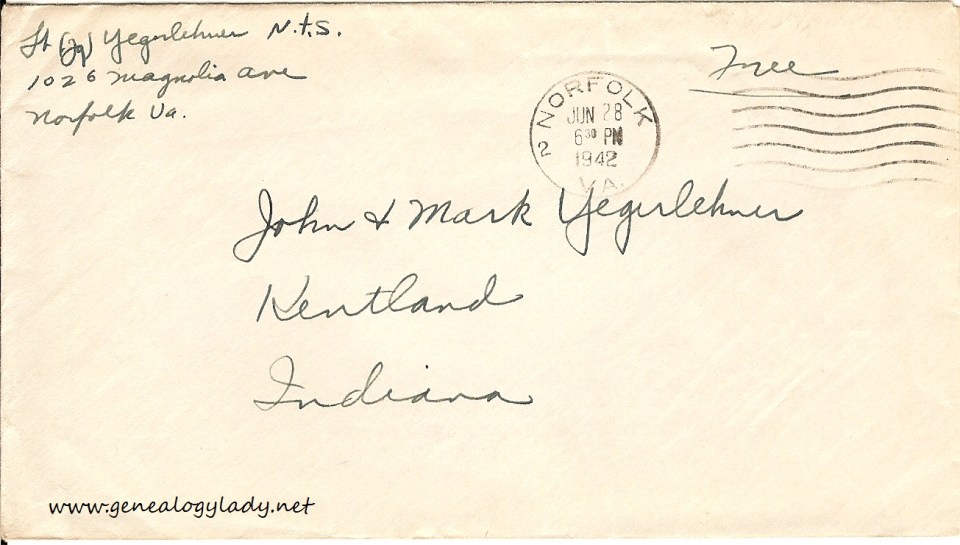 Lt (jg) Yegerlehner N.t.S.
1026 Magnolia ave
Norfolk Va.
Free
2 NORFOLK VA.
JUN 28
6 30 PM
1942
John & Mark Yegerlehner
Kentland
Indiana
www.genealogylady.net